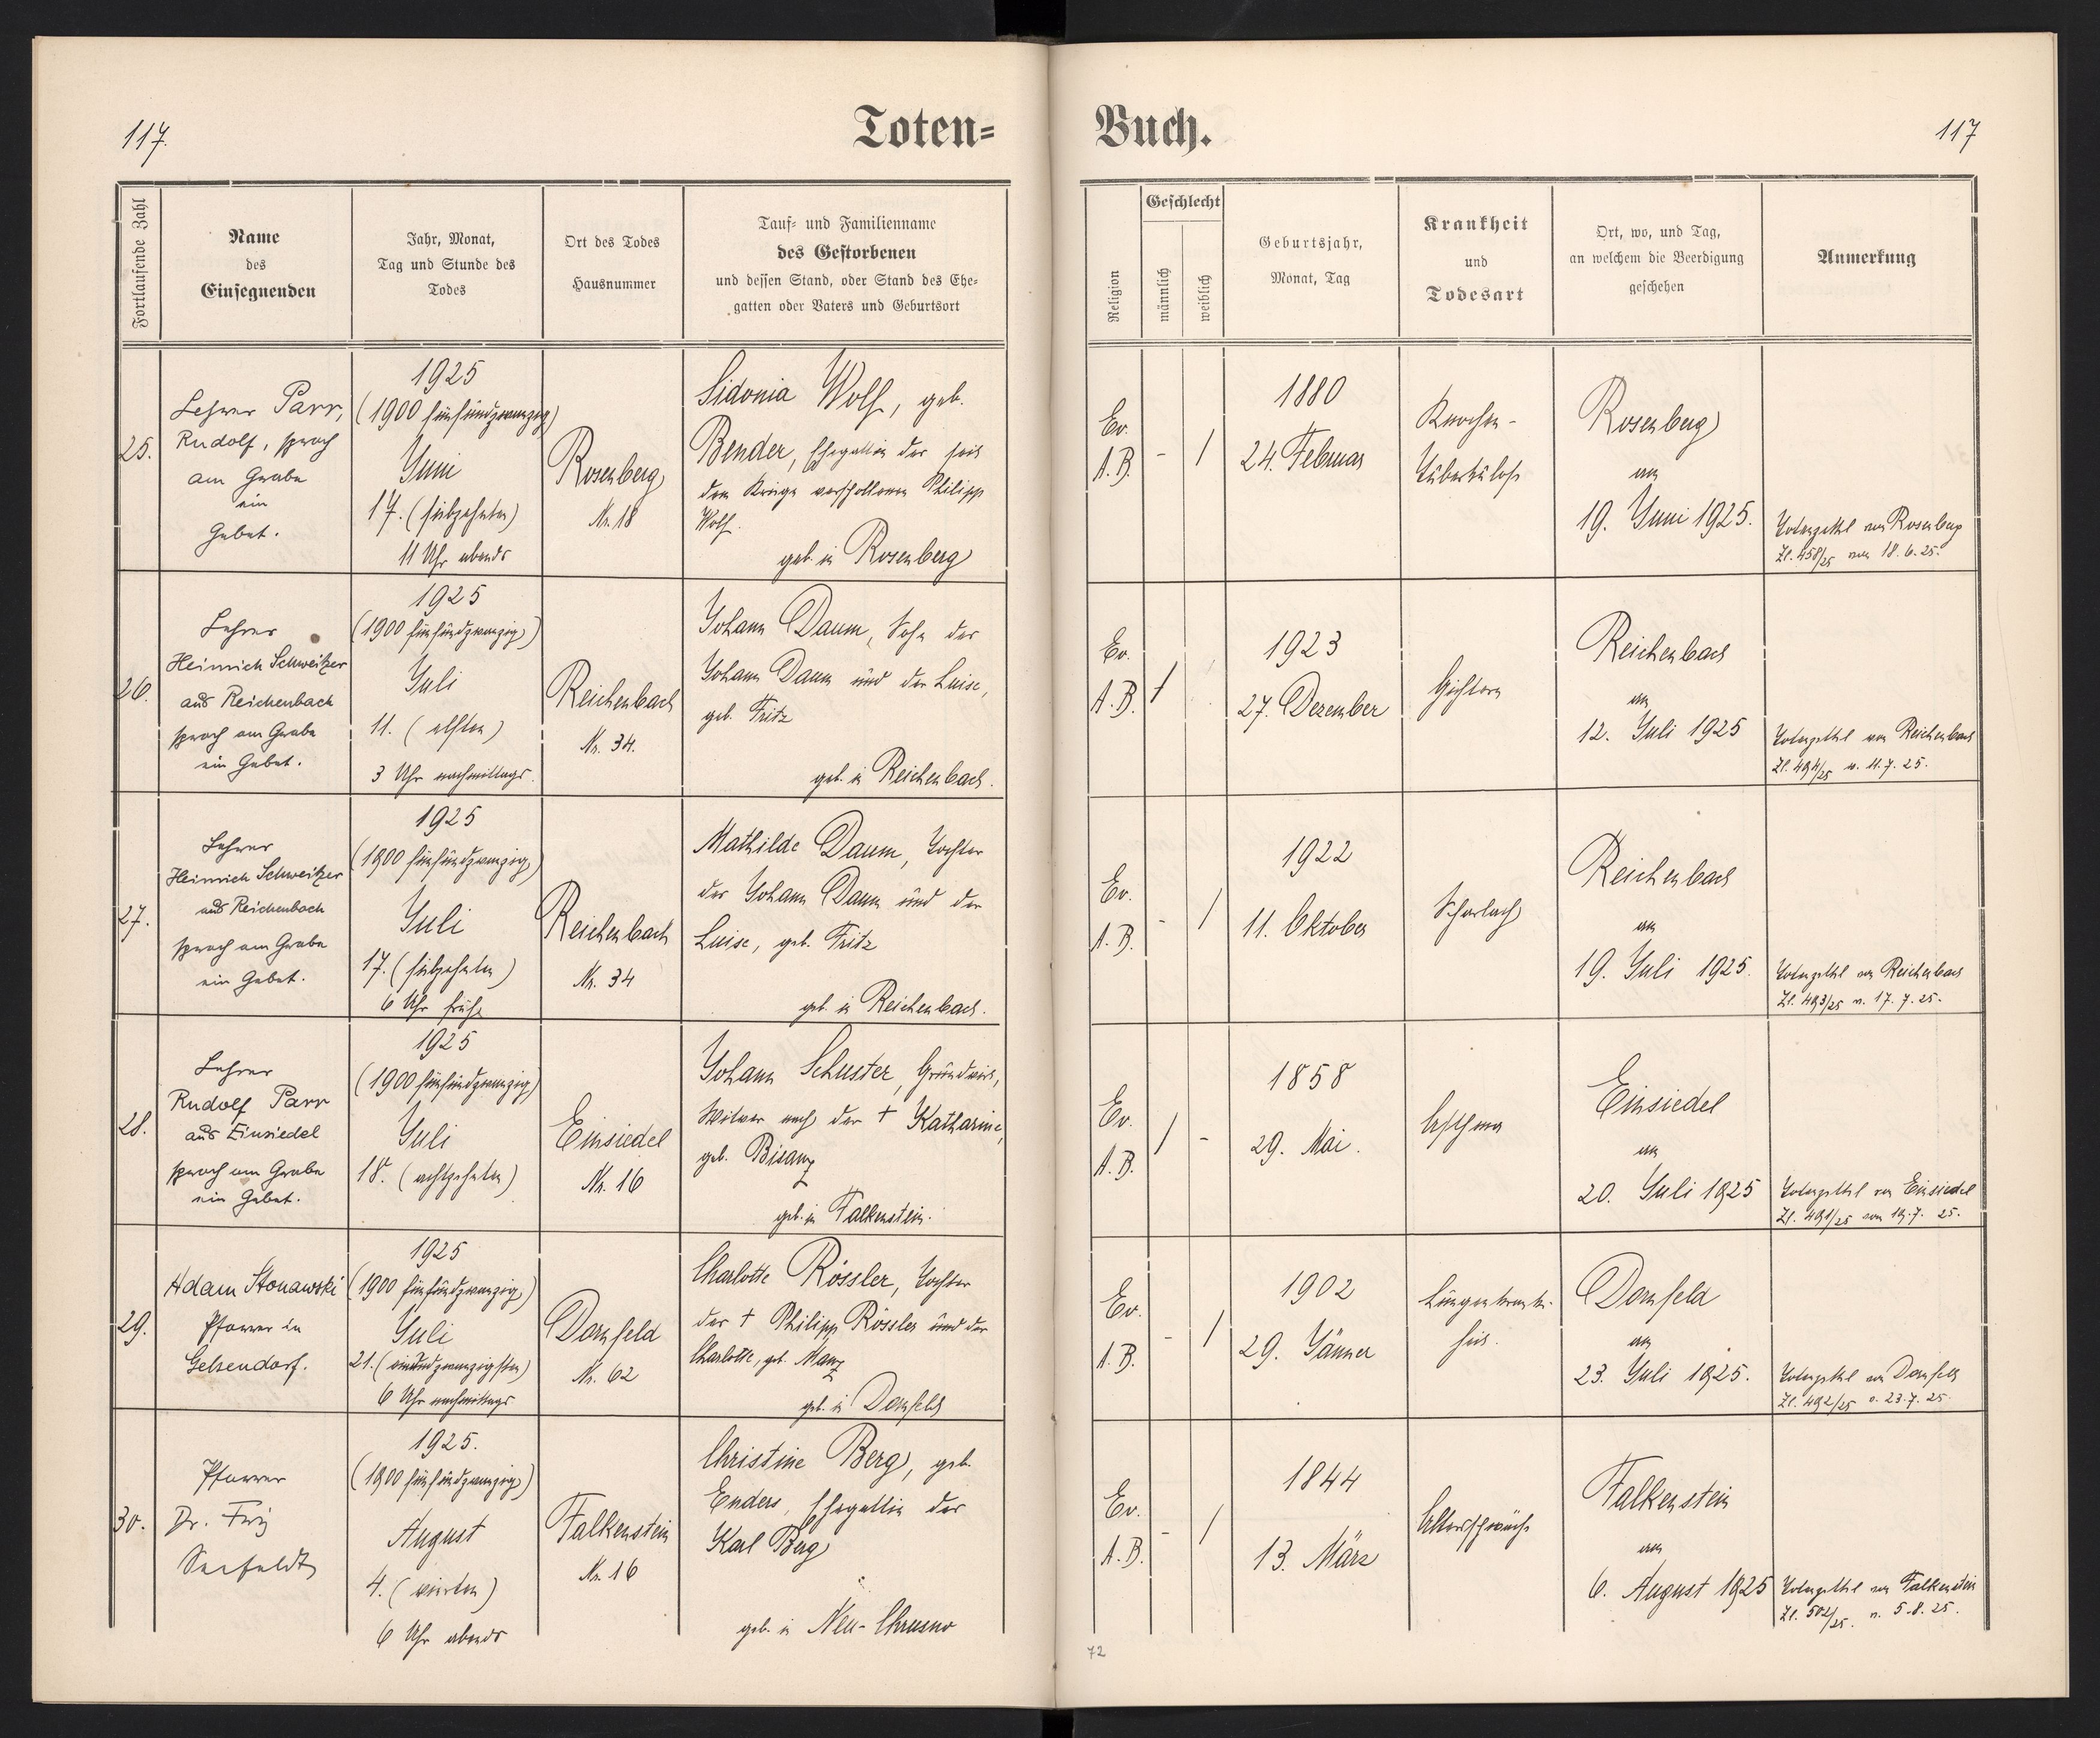 117.
Toten=
Buch.
117
Fortlaufende Zahl
Name
des
Einsegnenden
Jahr, Monat,
Tag und Stunde des
Todes
Ort des Todes
Hausnummer
Tauf= und Familienname
des Gestorbenen
und dessen Stand, oder Stand des Ehe=
gatten oder Vaters und Geburtsort
Religion
Geschlecht
männlich
weiblich
Geburtsjahr,
Monat, Tag
Krankheit
und
Todesart
Ort, wo, und Tag,
an welchem die Beerdigung
geschehen
Anmerkung
25.
Lehrer Parr,
Rudolf, sprach
am Grabe
ein
Gebet.
1925
(1900 fünfundzwanzig)
Juni
17. (siebzehnten)
11 Uhr abends
Rosenberg
Nr. 18
Sidonia Wolf, geb.
Bender, Ehegattin des seit
dem Kriege verschollenen Philipp
Wolf.
geb. in Rosenberg
Ev.
A.B.
-
1
1880
24. Februar
Knochen-
tuberkulose
Rosenberg
am
19. Juni 1925.
Totenzettel von Rosenberg
Zl. 458/25 vom 18.6.25.
26.
Lehrer
Heinrich Schweitzer
aus Reichenbach
sprach am Grabe
ein Gebet.
1925
(1900 fünfundzwanzig)
Juli
11. (elften)
3 Uhr nachmittags.
Reichenbach
Nr. 34.
Johann Daum, Sohn des
Johann Daum und der Luise,
geb. Fritz
geb. in Reichenbach.
Ev.
A.B.
1
1923
27. Dezember
Reichenbach
am
12. Juli 1925
Totenzettel von Reichenbach
Zl. 494/25 v. 11.7.25.
27.
Lehrer
Heinrich Schweitzer
aus Reichenbach
sprach am Grabe
ein Gebet.
1925
(1900 fünfundzwanzig)
Juli
17. (siebzehnten)
6 Uhr früh
Reichenbach
Nr. 34
Mathilde Daum, Tochter
des Johann Daum und der
Luise, geb. Fritz
geb. in Reichenbach.
Ev.
A.B.
-
1
1922
11. Oktober
Scharlach
Reichenbach
am
19. Juli 1925.
Totenzettel von Reichenbach
Zl. 493/25 v. 17.7.25.
28.
Lehrer
Rudolf Parr
aus Einsiedel
sprach am Grabe
ein Gebet.
1925
(1900 fünfundzwanzig)
Juli
18. (achtzehnten)
Einsiedel
Nr. 16
Johann Schuster, Grundwirt,
Witwer nach der † Katharine,
geb. Bisanz
geb. in Falkenstein.
Ev.
A.B.
1
-
1858
29. Mai.
Asthma
Einsiedel
am
20. Juli 1925
Totenzettel von Einsiedel
Zl. 491/25 vom 19.7.25.
29.
Adam Stonawski
Pfarrer in
Gelsendorf.
1925
(1900 fünfundzwanzig)
Juli
21. (einundzwanzigsten)
6 Uhr nachmittags
Dornfeld
Nr. 62
Charlotte Rössler, Tochter
des † Philipp Rössler und der
Charlotte, geb. Manz
geb. in Dornfeld
Ev.
A.B.
-
1
1902
29. Jänner
Lungenkrank-
heit.
Dornfeld
am
23. Juli 1925.
Totenzettel von Dornfeld
Zl. 492/25 v. 23.7.25.
30.
Pfarrer
Dr. Fritz
Seefeldt
1925.
(1900 fünfundzwanzig)
August
4. (vierten)
6 Uhr abends
Falkenstein
Nr. 16
Christine Berg, geb.
Enders, Ehegattin des
Karl Berg
geb. in Neu-Chrusno
Ev.
A.B.
-
1
1844
13. März
Altersschwäche
Falkenstein
am
6. August 1925
Totenzettel von Falkenstein
Zl. 502/25. v. 5.8.25.
72